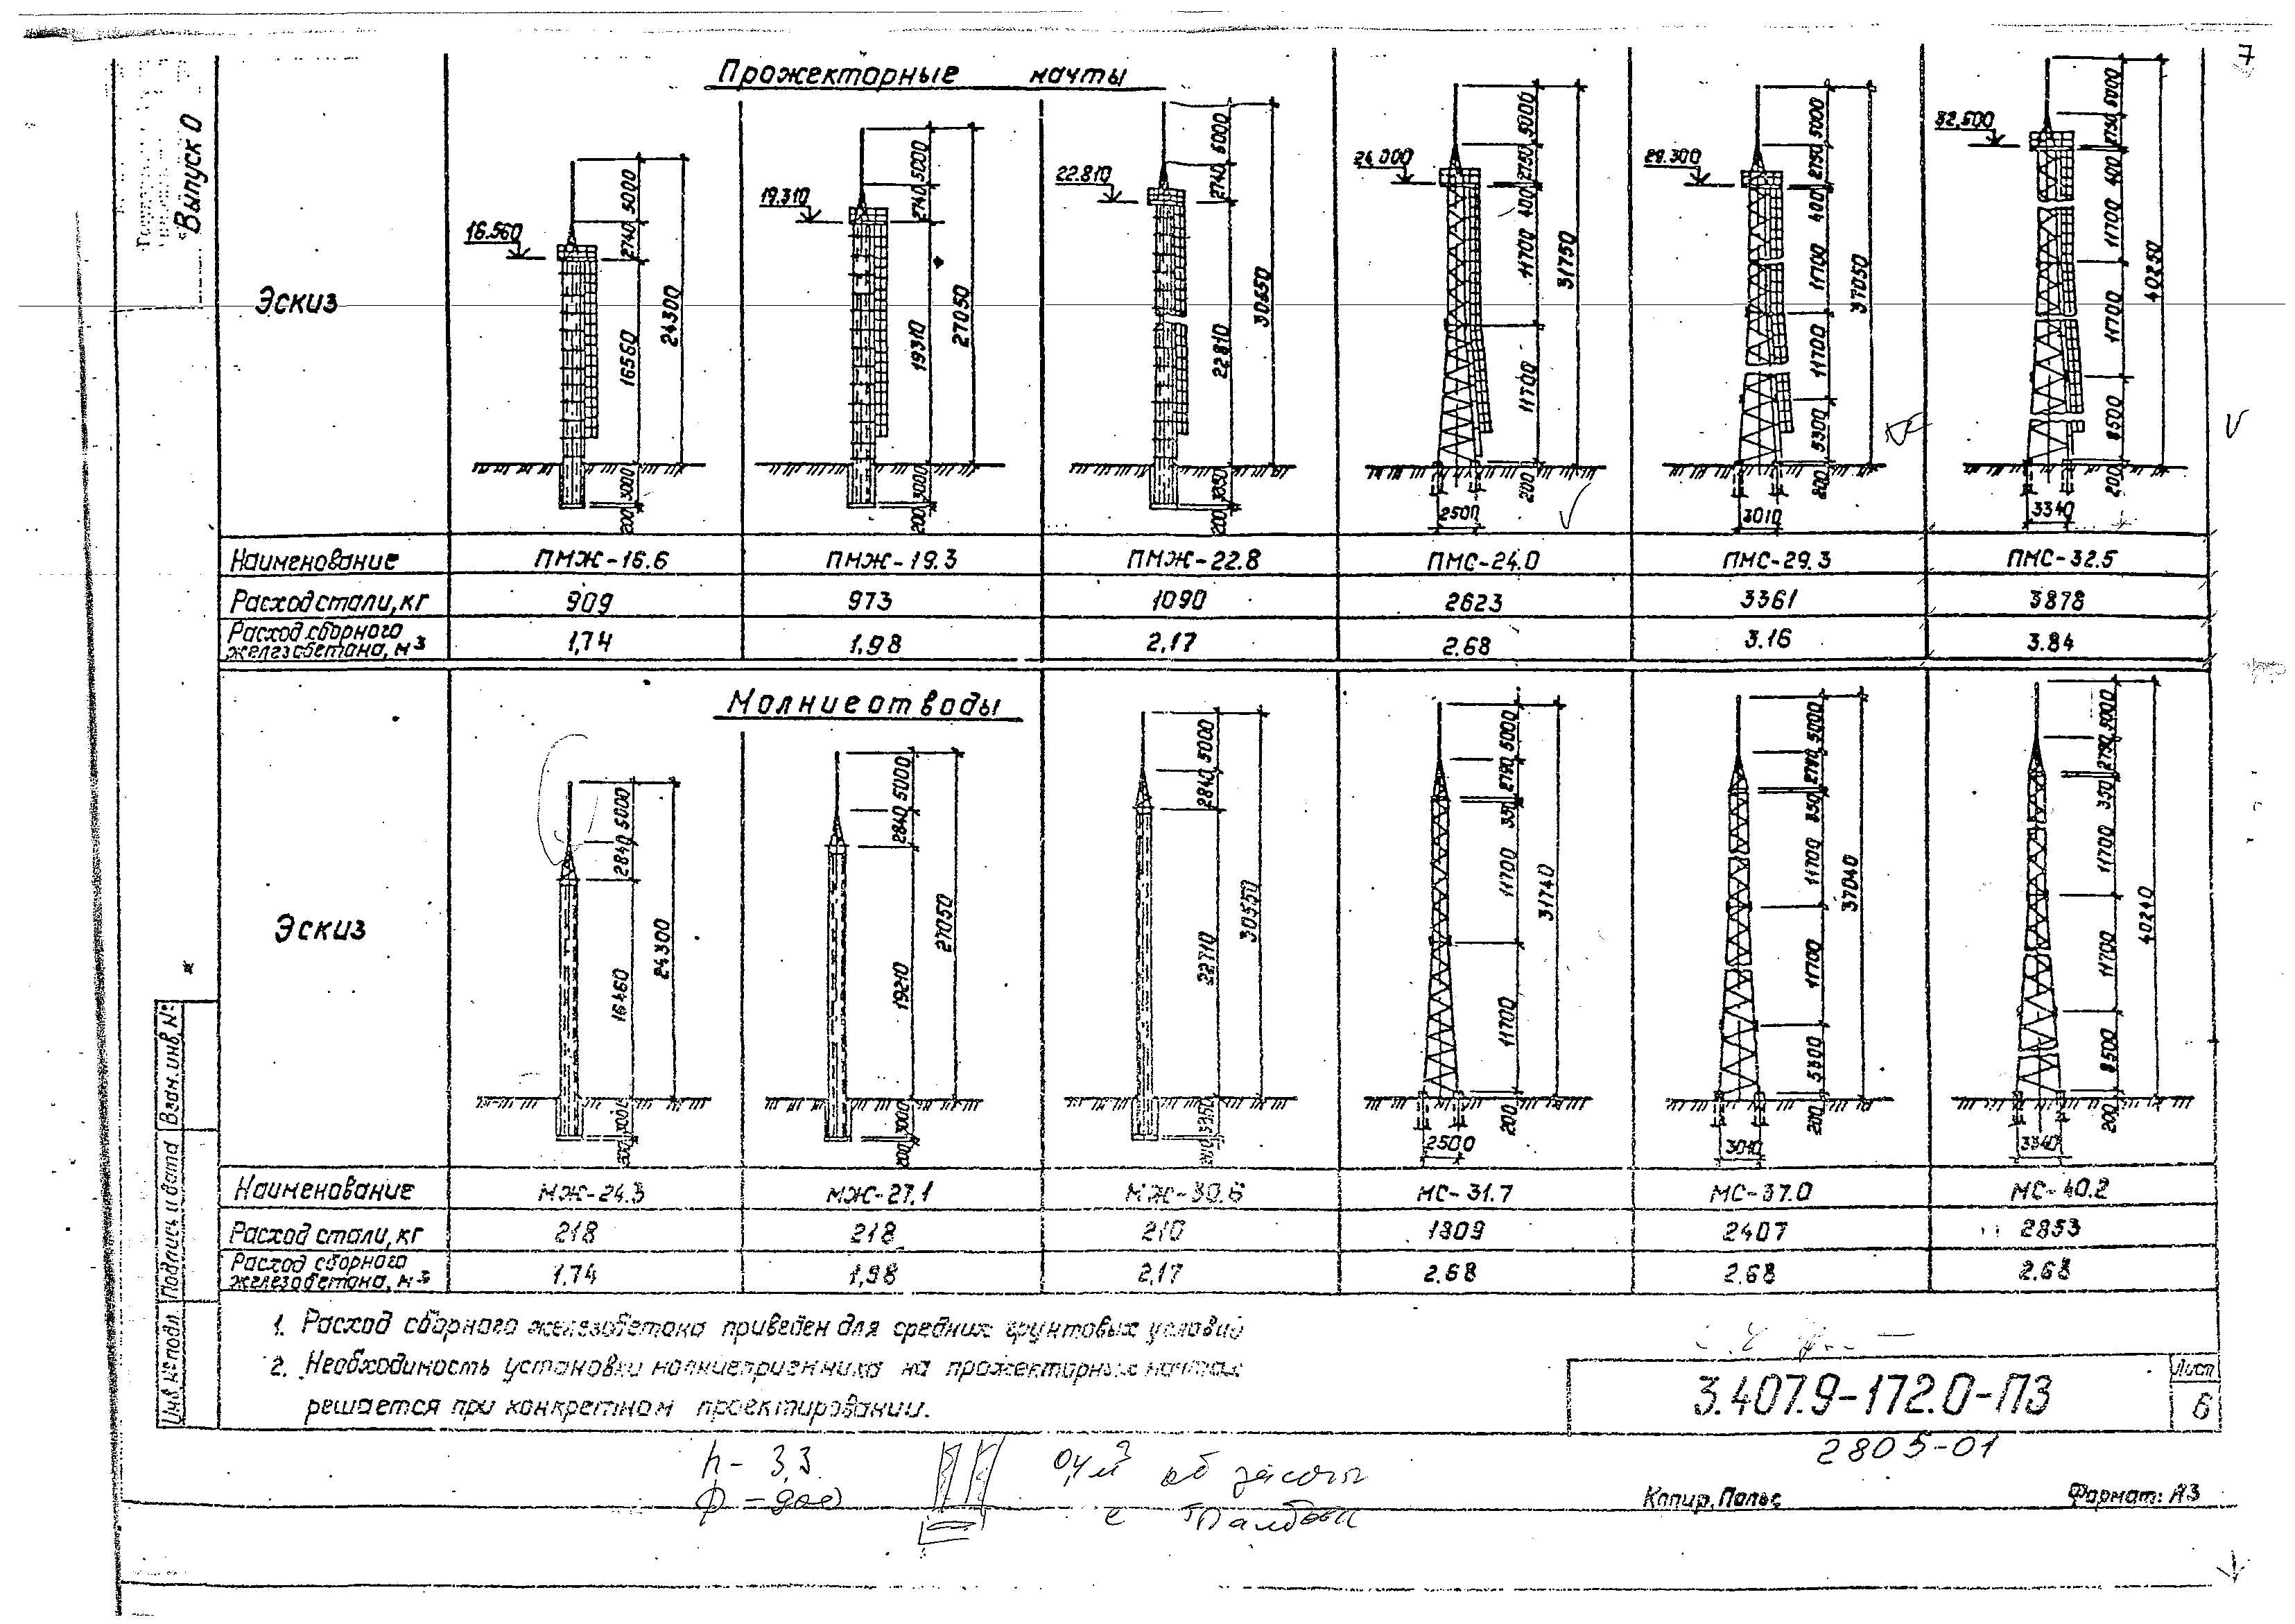 7
Выпуск 0
Прожекторные мачты
Эскиз
16.560
5000
2740
16560
24300
3000
200
19.310
5000
2740
19310
27050
3000
200
22.810
5000
2740
22810
30550
3350
200
24.000
5000
2750
400
11700
11700
31750
200
2500
29.300
5000
2750
400
11700
11700
5300
37050
200
3010
32.500
5000
2750
400
11700
11700
8500
40250
200
3340
Наименование ПМЖ-16.6 ПМЖ-19.3 ПМЖ-22.8 ПМС-24.0 ПМС-29.3 ПМС-32.5
Расход стали, кг 909 973 1090 2623 3361 3878
Расход сборного железобетона, м³ 1,74 1,98 2,17 2.68 3.16 3.84
Молниеотводы
Эскиз
5000
2840
16460
24300
3000
200
5000
2840
19210
27050
3000
200
5000
2840
22710
30550
3350
5000
2790
350
11700
11700
31740
200
2500
5000
2790
350
11700
11700
5300
37040
200
3010
5000
2790
350
11700
11700
8500
40240
200
3340
Наименование МЖ-24.3 МЖ-27.1 МЖ-30.6 МС-31.7 МС-37.0 МС-40.2
Расход стали, кг 218 218 210 1809 2407 2853
Расход сборного железобетона, м³ 1,74 1,98 2,17 2.68 2.68 2.68
1. Расход сборного железобетона приведен для средних грунтовых условий
2. Необходимость установки молниеприемника на прожекторных мачтах
решается при конкретном проектировании.
Инв. № подл. Подпись и дата Взам. инв. №
3.407.9-172.0-ПЗ
Лист
6
2805-01
h- 3,3
Копир. Польс
Формат: А3